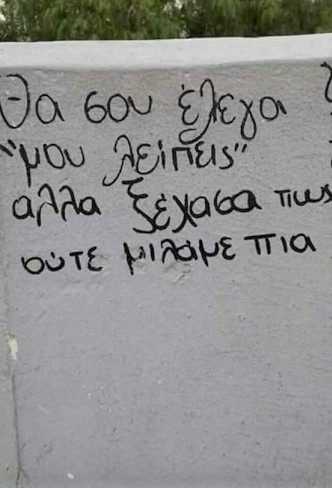 θα σου έλεγα
"μου λείπεις"
αλλα ξέχασα πως
ούτε μιλάμε πια